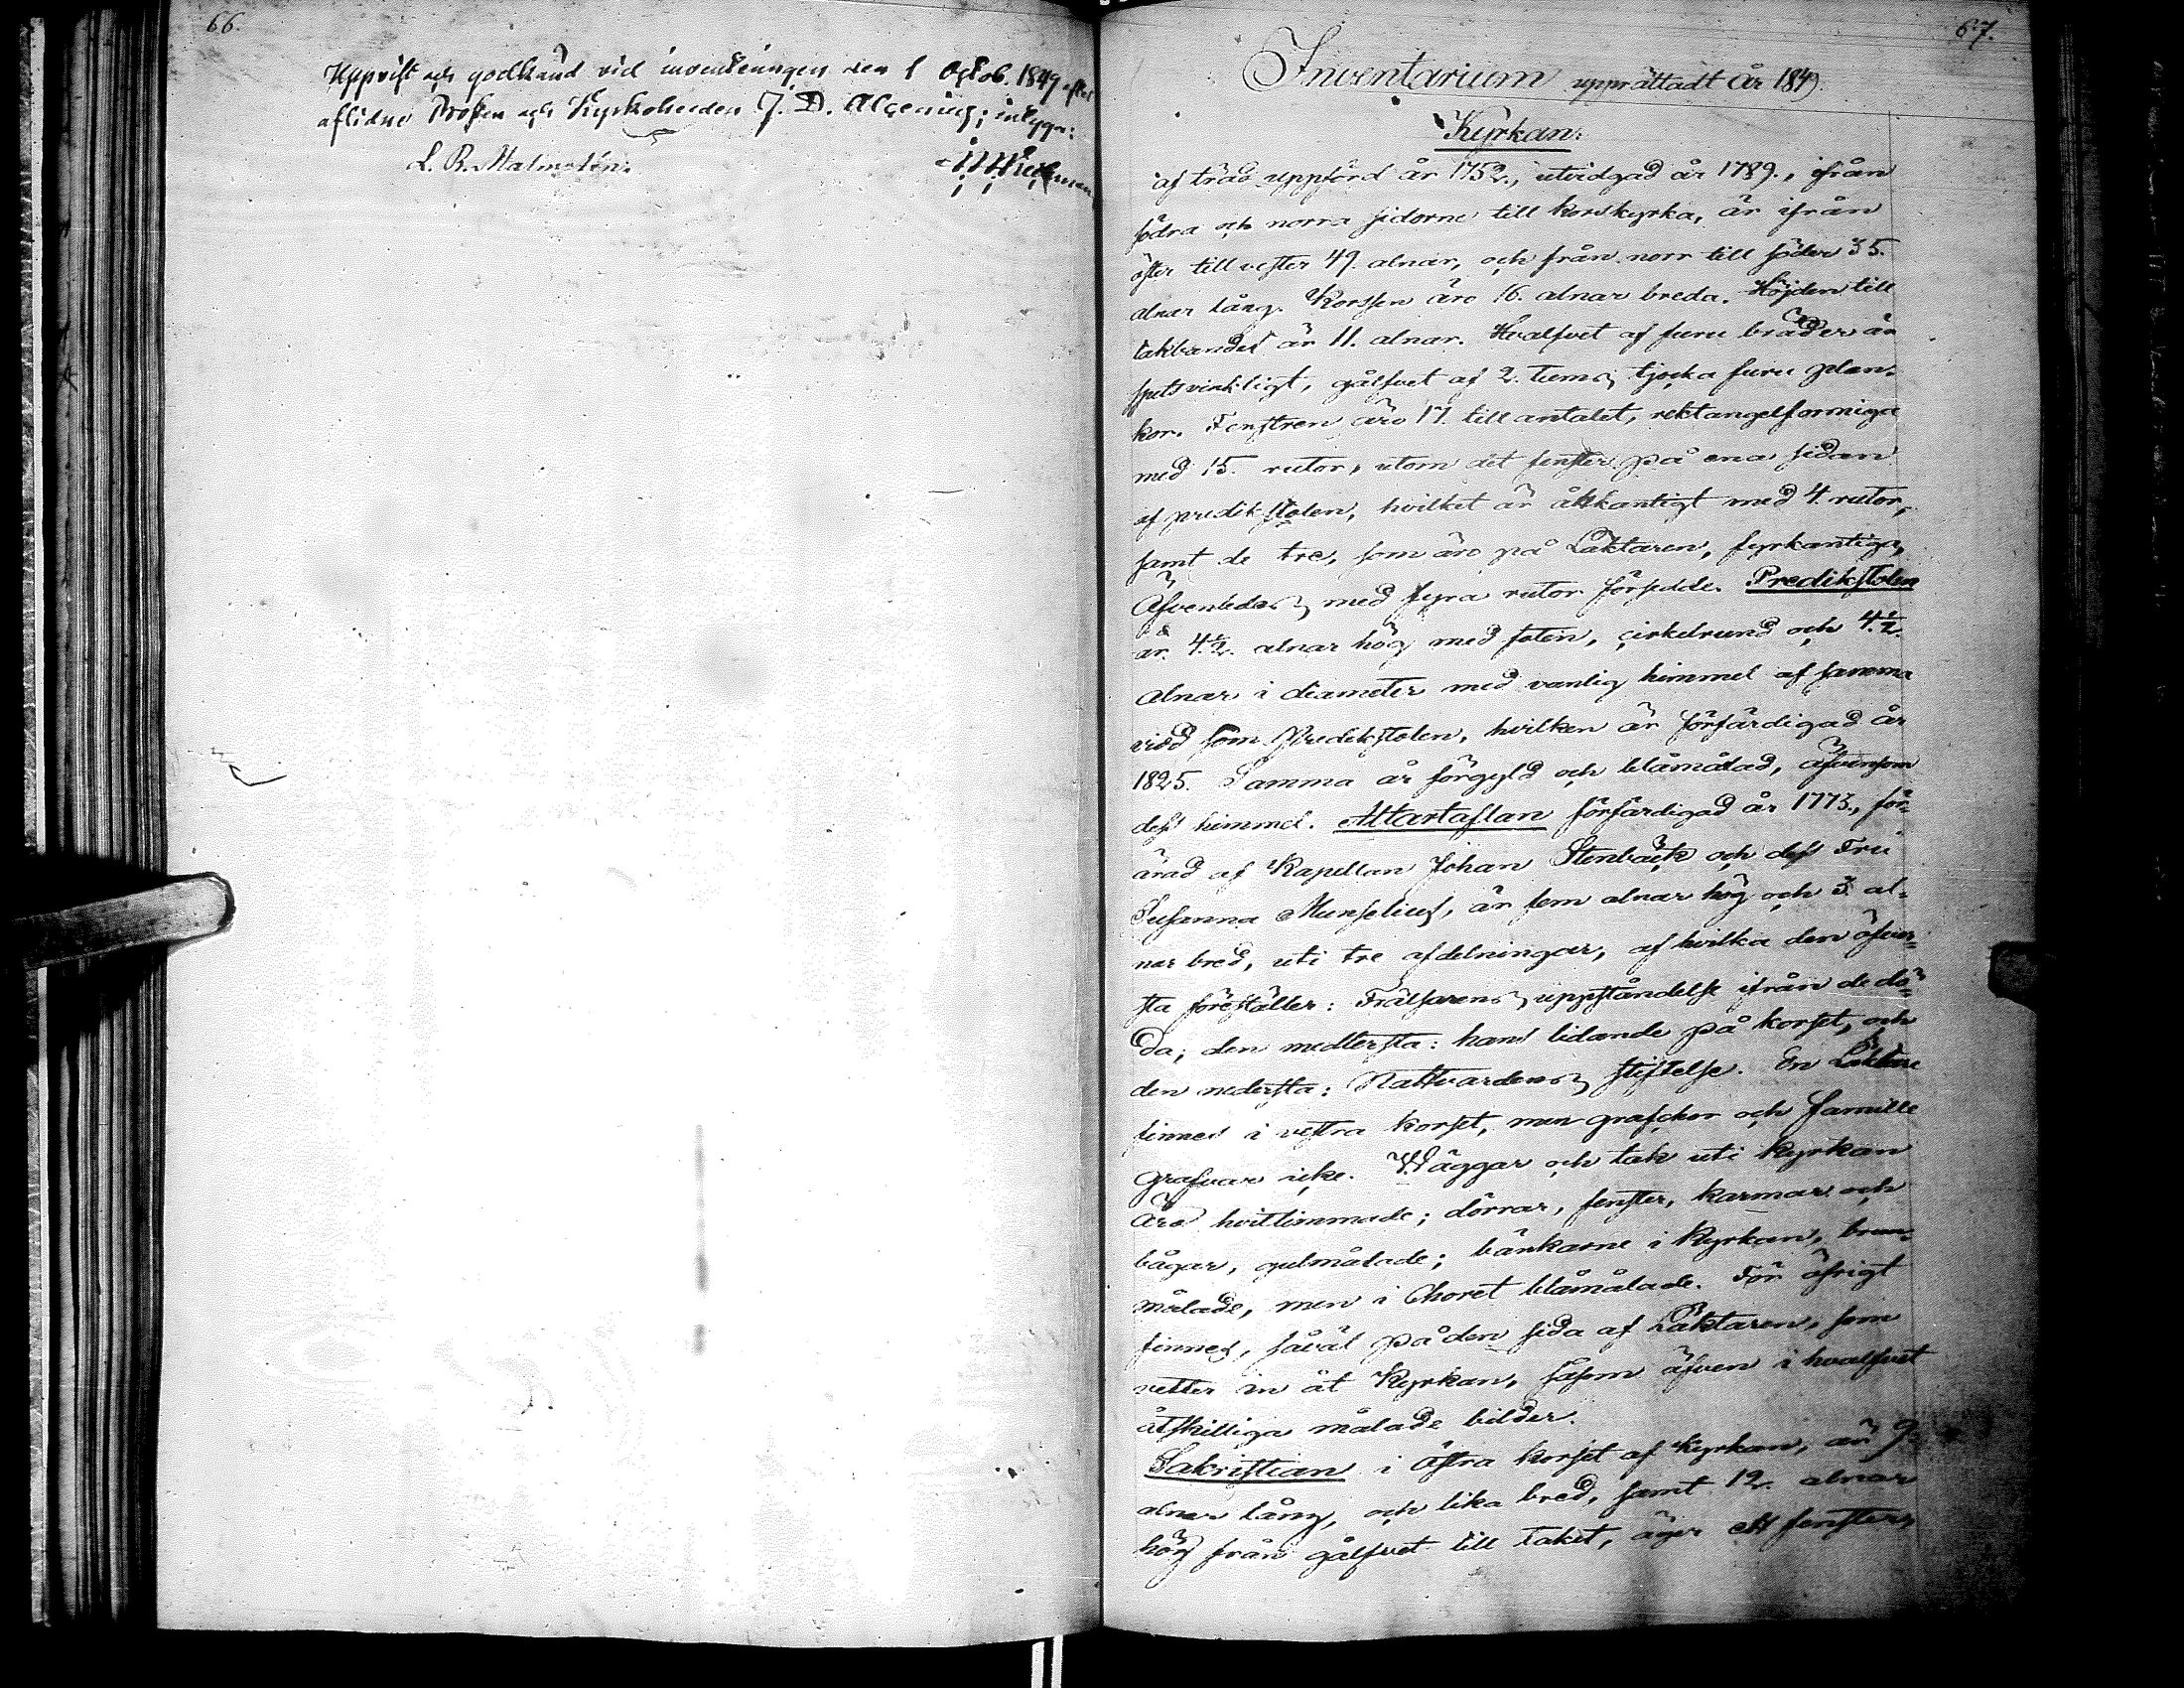 66.
Uppvist och godkänd vid inventeringen den 1 Octob. 1849 efter
aflidne Prosten och Kyrkoherden J. D. Alcenius; intyga:
L. B. Malmstén.
67.
Inventarium upprättadt år 1849.
Kyrkan:
af träd uppförd år 1752., utvidgad år 1789., ifrån
södra och norra sidorne till korskyrka, är ifrån
öster till vester 49. alnar, och från norr till söder 35.
alnar lång. Korssen äro 16. alnar breda. Höjden till
takbandet är 11. alnar. Hvalfvet af furu bräder är
spetsvinkligt, gålfvet af 2. tums tjocka furu plan-
kor. Fenstren äro 17. till antalet, rektangelformiga
med 15. rutor, utom det fenster på ena sidan
af predikstolen, hvilket är åttkantigt med 4. rutor,
samt de tre, som äro på Läktaren, fyrkantiga,
äfvenledes med fyra rutor försedde. Predikstolen
är 4.½. alnar hög med foten, cirkelrund och 4.½.
alnar i diameter med vanlig himmel af samma
vidd som Predikstolen, hvilken är förfärdigad år
1825. Samma år förgyld och blåmålad, äfvensom
dess himmel. Altartaflan förfärdigad år 1773., för-
ärad af Kapellan Johan Stenbäck och dess Fru
Susanna Munselius, är fem alnar hög och 3 al-
nar bred, uti tre afdelningar, af hvilka den öfver-
sta föreställer: Frälsarens uppståndelse ifrån de dö-
da; den medlersta: hans lidande på korset, och
den nedersta: Nattvardens stiftelse. En Läktare
finnes i vestra korset, men grafchor och famille
grafvar icke. Wäggar och tak uti Kyrkan
äro hvitlimmade; dörrar, fenster, karmar och
bågar, gulmålade; bänkarne i Kyrkan, brun-
målade, men i Choret blåmålade. För öfrigt
finnes, såväl på den sida af Läktaren, som
vetter in åt Kyrkan, såsom äfven i hvalfvet
åtskilliga målade bilder.
Sakristian i östra korset af Kyrkan, är 9
alnar lång, och lika bred, samt 12. alnar
hög från gålfvet till taket, äger ett fenster,